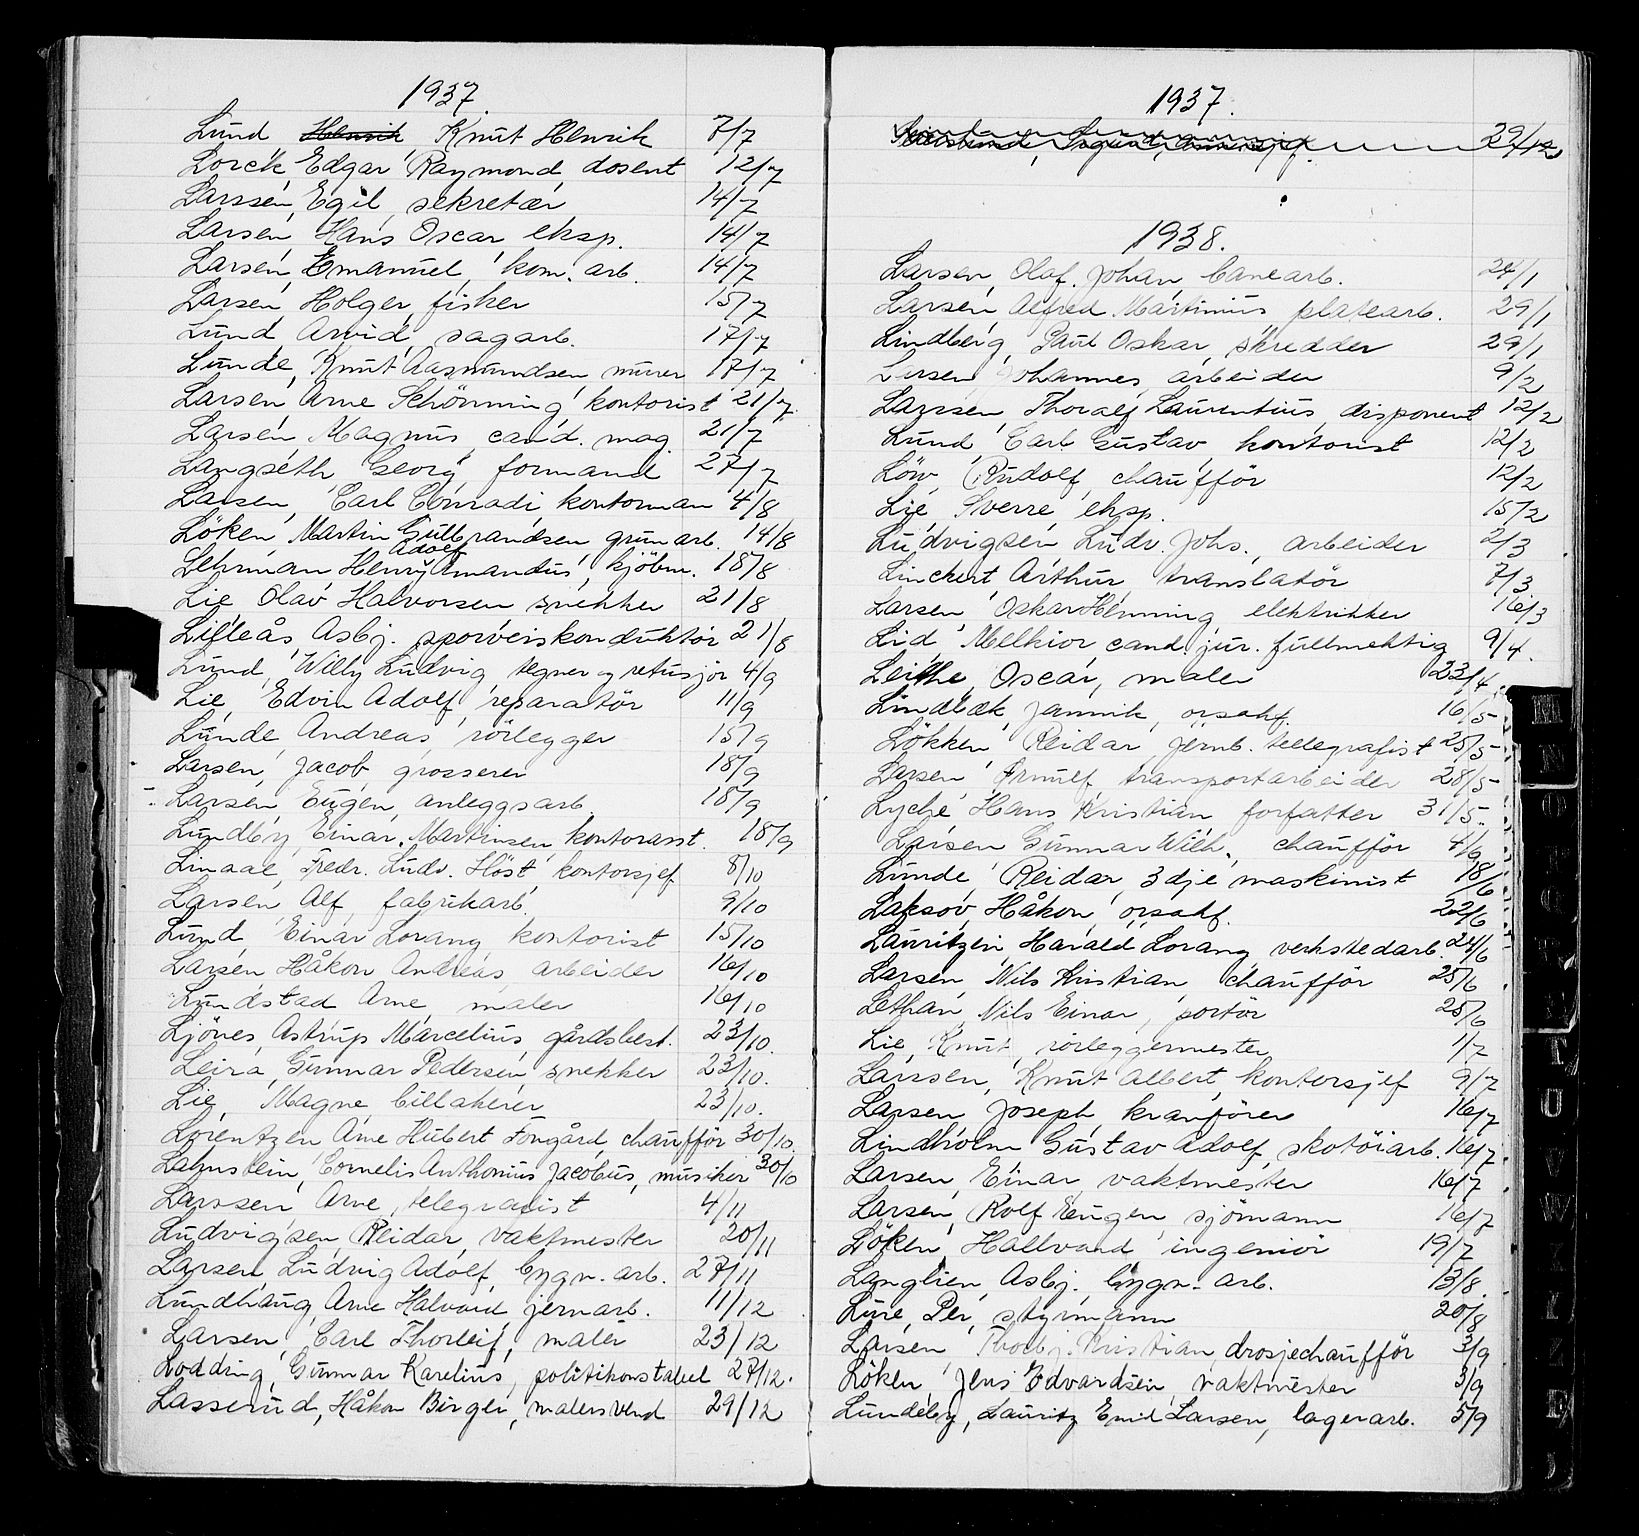 1937.
Lund Henrik, Knut Henrik 7/7
Lorck, Edgar Raymond, dosent 12/7
Larssen, Egil, sekretær 14/7
Larsen, Hans Oscar, eksp. 14/7
Larsen, Emanuel, kom. arb. 14/7
Larsen, Holger, fisker 15/7
Lund, Arvid, sagarb. 17/7
Lunde, Knut Aasmundsen, murer 17/7
Larsen, Arne Schönning, kontorist 21/7.
Larsen, Magnus, cand. mag. 21/7
Langseth, Georg, formand 27/7
Larsen, Carl Conradi, kontorman 4/8
Löken, Martin Gulbrandsen, grunarb. 14/8
Lehrman, Henry Adolf Amandus, kjöbm. 18/8
Lie, Olav Halvorsen, snekker 21/8
Lilleås, Asbj. sporveiskonduktör 21/8
Lund, Willy Ludvig, tegner og retusjör 4/9
Lie, Edvin Adolf, reparatör 11/9
Lunde, Andreas, rörlegger 15/9
Larsen, Jacob, grosserer 18/9
Larsen, Eugen, anleggsarb. 18/9
Lundby, Einar Martinsen, kontorasst. 18/9
Linaae, Fredr. Ludv. Höst, kontorsjef 8/10
Larsen, Alf, fabrikarb. 9/10
Lund, Einar Lorang, kontorist 15/10
Larsen, Håkon Andreas, arbeider 16/10
Lundstad, Arne, maler 16/10
Ljönes, Astrup Marcelius, gårdsbest. 23/10.
Leira, Gunnar Pedersen, snekker 23/10.
Lie, Magne, billakerer 23/10.
Lorentzen, Arne Hubert Fongård, chaufför 30/10.
Lahnstein, Cornelis Anthonius Jacobus, musiker 30/10
Larssen, Arne, telegrafist 4/11
Ludvigsen, Reidar, vaktmester 20/11
Larsen, Ludvig Adolf, bygn. arb. 27/11
Lundhaug, Arne Halvard, jernarb. 11/12
Larsen, Carl Thorleif, maler 23/12
Lodding, Gunnar Karelius, politikonstabel 27/12.
Lasserud, Håkon Birger, malersvend 29/12
1937.
29/12
1938.
Larsen, Olaf Johan, banearb. 24/1
Larsen, Alfred Martinius, platearb. 29/1
Lindberg, Paul Oskar, skredder 29/1
Larsen, Johannes, arbeider 9/2
Larssen, Thoralf Laurentius, disponent 12/2
Lund, Carl Gustav, kontorist 12/2
Löw, Rudolf, chaufför 12/2
Lie, Sverre, eksp. 15/2
Ludvigsen, Ludv. Johs., arbeider 2/3
Linckert, Arthur, translatör 7/3
Larsen, Oskar Henning, elektriker 16/3
Lid, Melkior, cand. jur. fullmektig 9/4.
Leithe, Oscar, maler 23/4.
Lindbæk, Jannik, orsakf. 16/5
Lökken, Reidar, jernb. tellegrafist 25/5
Larsen, Arnulf, transportarbeider 28/5
Lyche, Hans Kristian, forfatter 31/5.
Larsen, Gunnar Wilh., chaufför 4/6
Lunde, Reidar, 3dje maskinist 18/6
Laksov, Håkon, orsakf. 22/6
Lauritzen, Harald Lorang, verkstedarb. 24/6
Larsen, Nils Kristian, chaufför 25/6
Lethan, Nils Einar, portör 25/6
Lie, Knut, rörleggermester 1/7
Larssen, Knut Albert, kontorsjef 9/7
Larsen, Joseph, kranförer 16/7
Lindholm, Gustav Adolf, skotöiarb. 16/7.
Larsen, Einar, vaktmester 16/7
Larsen, Rolf Eugen, sjömann 16/7
Löken, Hallvard, ingeniör 19/7
Langlien, Asbj. bygn. arb. 13/8.
Lure, Per, styrmann 20/8
Larsen, Thorbj. Kristian, drosjechaufför 3/9
Löken, Jens Edvardsen, vaktmester 3/9
Lundeby, Lauritz Emil Larsen, lagerarb. 5/9
M
N
O
U
V
W